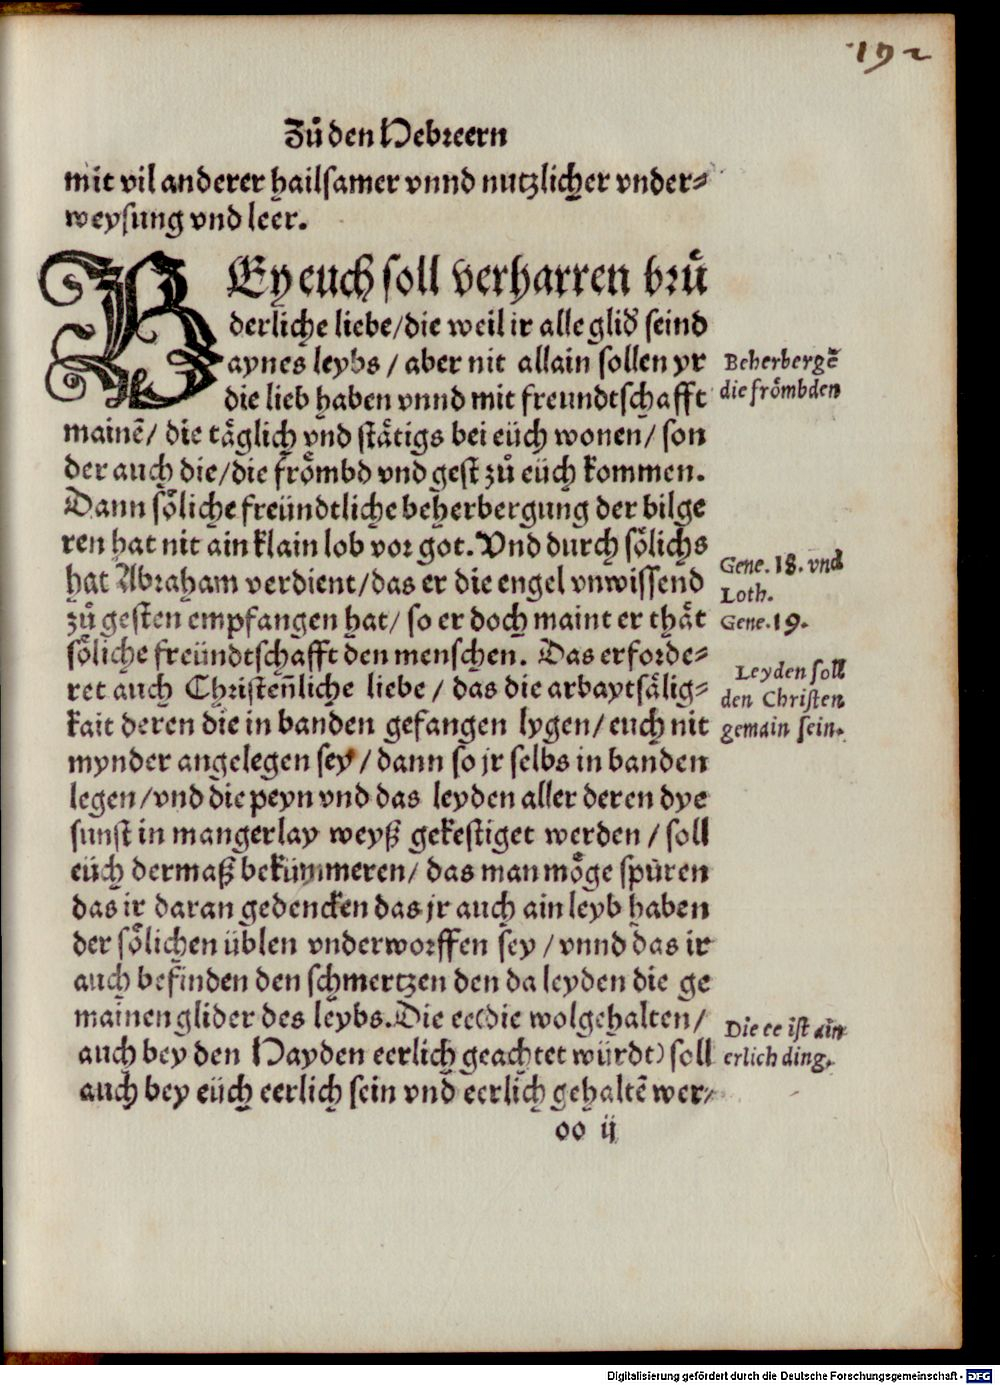 192
Zů den Hebreern
mit vil anderer hailsamer vnnd nutzlicher vnder⸗
weysung vnd leer.
BEy euch soll verharren brů
derliche liebe/die weil ir alle glid̕ seind
aynes leybs / aber nit allain sollen yr
die lieb haben vnnd mit freundtschafft
mainẽ/ die täglich vnd stätigs bei eüch wonen/ son
der auch die/die frömbd vnd gest zů eüch kommen.
Dann söliche freündtliche beherbergung der bilge
ren hat nit ain klain lob vor got. Vnd durch sölichs
hat Abraham verdient/das er die engel vnwissend
zů gesten empfangen hat/ so er doch maint er thät
söliche freündtschafft den menschen. Das erforde⸗
ret auch Christeñliche liebe / das die arbaytsälig⸗
kait deren die in banden gefangen lygen/ euch nit
mynder angelegen sey / dann so jr selbs in banden
legen/vnd die peyn vnd das leyden aller deren dye
sunst in mangerlay weyß gekestiget werden / soll
eüch dermaß bekümmeren/ das man möge spüren
das ir daran gedencken das jr auch ain leyb haben
der sölichen üblen vnderworffen sey / vnnd das ir
auch befinden den schmertzen den da leyden die ge
mainen glider des leybs. Die ee(die wolgehalten/
auch bey den Hayden eerlich geachtet würdt) soll
auch bey eüch eerlich sein vnd eerlich gehaltẽ wer⸗
oo ij
Beherbergẽ
die frömbden
Gene. 18. vnd
Loth.
Gene. 19.
Leyden soll
den Christen
gemain sein.
Die ee ist ain
erlich ding.
Digitalisierung gefördert durch die Deutsche Forschungsgemeinschaft - DFG